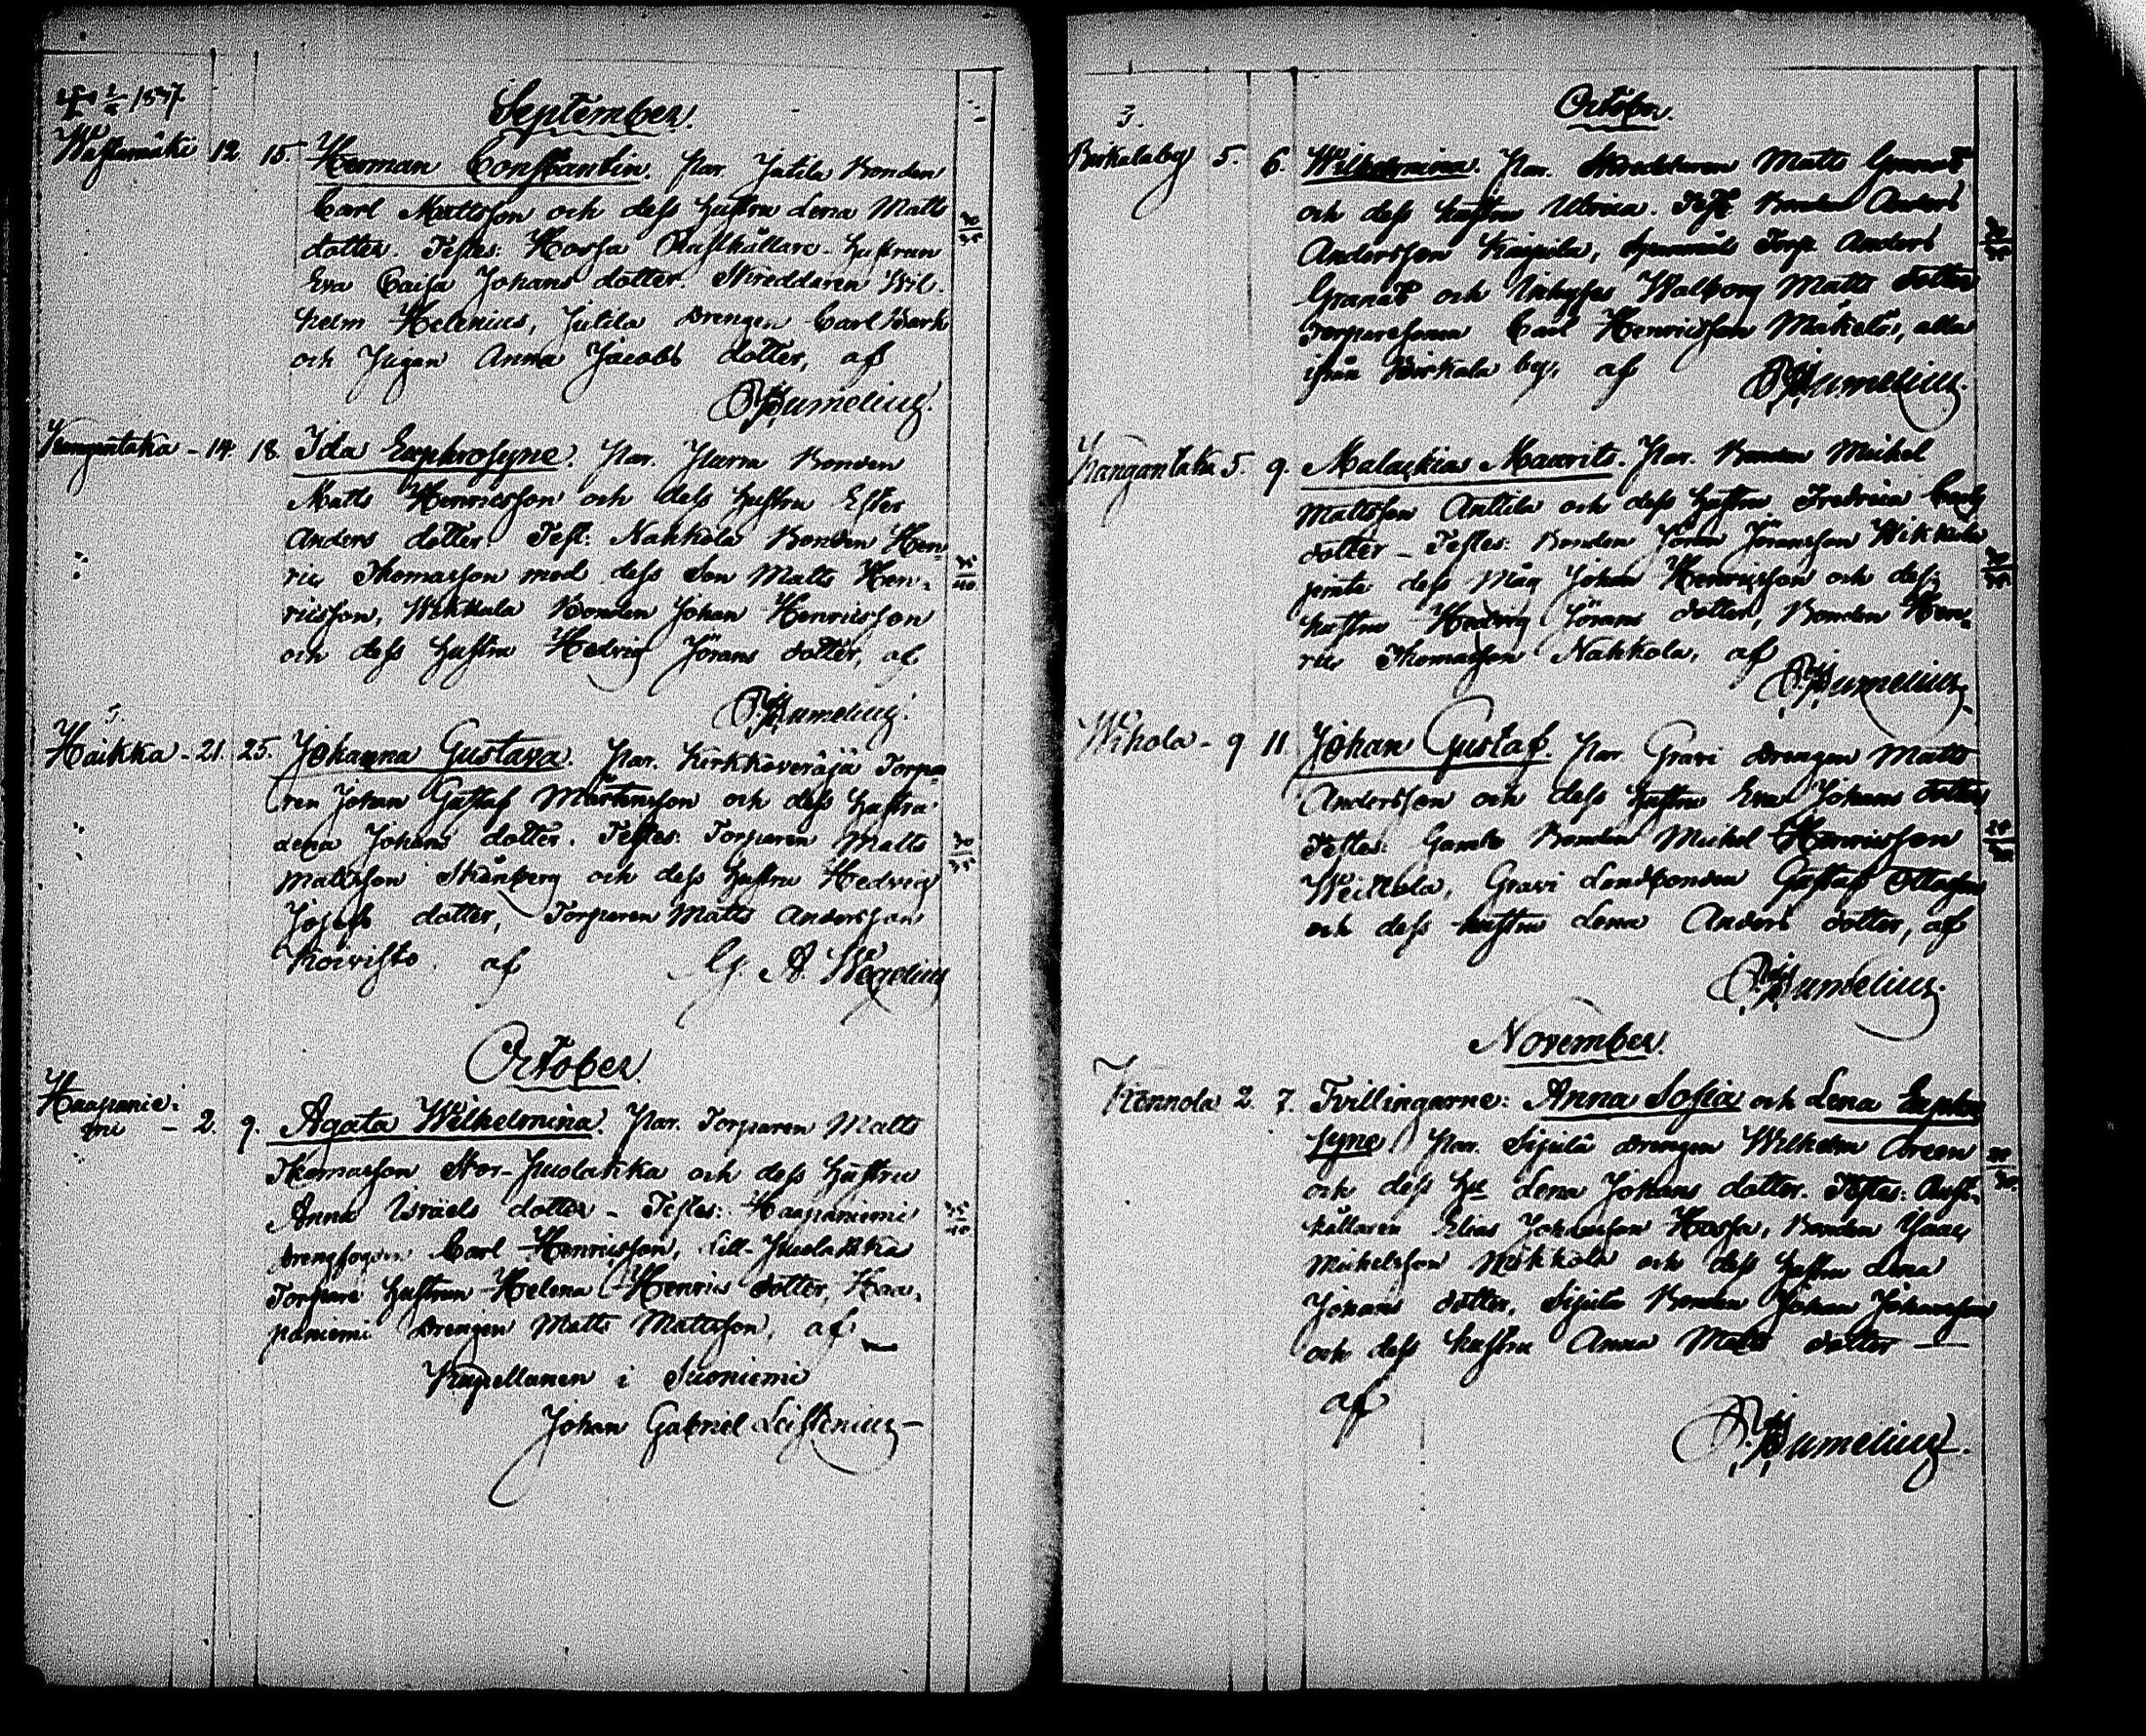 September.
Herman Constantin. Par. Jutila Bonden
Carl Mattsson och dess hustru Lena Matts
dotter. Testes: Hossa Rusthållare-hustrun
Eva Caisa Johans dotter. Skreddaren Wil-
helm Helenius, Jutila Drengen Carl
och Pigan Anna Jacobs dotter, af
Bumelius.
12. 15.
Kangantaka - 14. 18. Ida Euphrosyne. Par. Bonden
Matts Henricsson och dess hustru Ester
Anders dotter. Test: Nahkola Bonden Hen-
ric Thomasson med dess Son Matts Hen-
ricsson, Wikkala Bonden Johan Henricsson
och dess hustru Hedvig Jörans dotter, af
Bumelius.
Haikka - 21. 25. Johanna Gustava. Par. Kirkkoveräjä Torpa-
ren Johan Gustaf Mårtensson och dess hustru
Lena Johans dotter. Testes: Torparen Matts
Mattsson och dess hustru Hedvig
Josephs dotter, Torparen Matts Andersson
Koivisto. af G. A. Wegelius
October.
Haapanie-
mi - 2. 9. Agata Wilhelmina. Par. Torparen Matts
Thomasson Stor-Puolakka och dess hustru
Anna Israels dotter - Testes: Haapaniemi
Drengfogden Carl Henricsson, Lill-Puolakka
Torpare hustrun Helena Henrics dotter, Haa-
paniemi Drengen Matts Mattsson, af
Kapellanen i Suoniemi
Johan Gabriel Leistenius
October.
Birkalaby 5. 6. Wilhelmina. Par. Skreddaren Matts Granat
och dess hustru Ulrica. Test. Bonden Anders
Andersson Torp. Anders
Granat och Walborg Matts dotter
Carl Henricsson Mäkelä, alla
ifrån Birkala by, af Bumelius.
Kangantaka 5. 9. Malackias Maurits. Par. Bonden Mickel
Mattsson Anttila och dess hustru Fredrica Carls
dotter - Testes: Bonden Jöran Jöransson Wikkala
jemte dess Måg Johan Henricsson och dess
hustru Hedvig Jörans dotter, Bonden Hen-
ric Thomasson Nahkola, af Bumelius
Wihola - 9 11. Johan Gustaf. Par Gravi Drengen Matts
Andersson och dess hustru Eva Johans dotter
Testes: Gamle Bonden Mickel Henricsson
Gravi Landbonden Gustaf
och dess hustru Lena Anders dotter, af
Bumelius.
November.
Kennola 2. 7. Tvillingarne: Anna Sofia och Lena Euphro-
syne Par. Sijula Drengen Wilhelm
och dess hu Lena Johans dotter. Testes: Rust-
hållaren Elias Johansson Hossa, Bonden Isaac
Mickelsson och dess hustru Lena
Johans dotter, Sijula Bonden Johan Johansson
och dess hustru Anna Matts dotter
af
Bumelius.